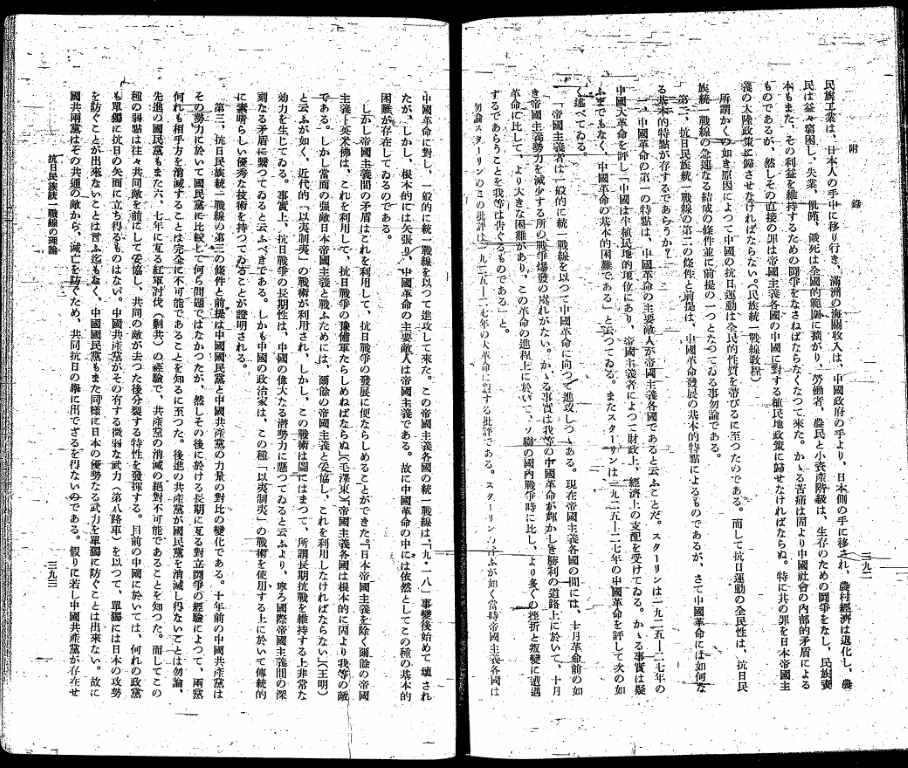 附錄
三九二
民族工業は、日本人の手中に移り行き、滿洲の海關收入は、中國政府の手より、日本側の手に移され、農村經濟は退化し、農
民は益々窮困し、失業、飢餓、餓死は全國的範圍に擴がり、勞働者、農民と小資產階級は、生存のための鬪爭をなし、民族資
本もまた、その利益を維持するための鬪爭をなさねばならなくなつて來た。かゝる苦痛は固より中國社會の內部的矛盾による
ものであるが、然しその直接の罪は帝國主義各國の中國に對する植民地政策に歸せなければならぬ。特に其の罪を日本帝國主
義の大陸政策に歸させなければならない。(民族統一戰線敎程)
所謂かくの如き原因によつて中國の抗日運動は全民的性質を帶びるに至つたのである。而して抗日運動の全民性は、抗日民
族統一戰線の急速なる結成の條件並に前提の一つとなつてゐる事勿論である。
第二、抗日民族統一戰線の第二の條件と前提は、中國革命發展の基本的特點によるものであるが、さて中國革命には如何な
る基本的特點が存するであらうか?
一、中國革命の第一の特點は、中國革命の主要敵人が帝國主義各國であると云ふことだ。スターリンは一九二五—二七年の
中國大革命を評し「中國は半植民地的地位にあり、帝國主義者によつて財政上、經濟上の支配を受けてゐる。かゝる事實は疑
ふまでもなく、中國革命の基本的困難である」と云つてゐる。またスターリンは一九二五—二七年の中國革命を評して次の如
く述べてゐる。
「帝國主義者は一般的に統一戰線を以つて中國革命に向つて進攻しつゝある。現在帝國主義各國の間には、十月革命前の如
き帝國主義勢力を減少する所の戰爭爆發の處れがない。かゝる事實は我等の中國革命が輝かしき勝利の道路上に於いて、十月
革命に比して、より大きな困難があり、この革命の進程上に於いて、ソ聯の國內戰爭時に比し、より多くの挫折と叛變に遭遇
するであらうことを我等は吿ぐるものである」と。
勿論スターリンのこの批評は一九二五—二七年の大革命に對する批評である。スターリンの云ふが如く當時帝國主義各國は
中國革命に對し、一般的に統一戰線を以つて進攻して來た。この帝國主義各國の統一戰線は「九・一八」事變後始めて壞され
たが、しかし、根本的には矢張り、中國革命の主要敵人は帝國主義である。故に中國革命の中には依然としてこの種の基本的
困難が存在してゐるのである。
しかし帝國主義間の矛盾はこれを利用して、抗日戰爭の發展に便ならしめることができた。「日本帝國主義を除く爾餘の帝國
主義—英米佛は、これを利用して、抗日戰爭の豫備軍たらしめねばならぬ」(毛澤東)「帝國主義各國は根本的に固より我等の敵
である。しかし當面の强敵日本帝國主義と戰ふためには、爾餘の帝國主義と妥協し、これを利用しなければならない」(王明)
と云ふが如く、近代的「以夷制夷」の戰術が利用され、しかし、この戰術は圖にはまつて、所謂長期抗戰を維持する上非常な
効力を生じてゐる。事實上、抗日戰爭の長期性は、中國の偉大たる潜勢力に懸つてゐると云ふより、寧ろ國際帝國主義間の深
刻なる矛盾に懸つてゐると云ふべきである。しかも中國の政治家は、この種「以夷制夷」の戰術を使用する上に於いて傳統的
に素晴らしい優秀な技術を持つてゐることが證明される。
第三、抗日民族統一戰線の第三の條件と前提は中國國民黨と中國共產黨の力量の對比の變化である。十年前の中國共產黨は
その勢力に於いて國民黨に比較して何ら問題ではなかつたが、然しその後に於ける長期に亙る對立鬪爭の經驗によつて、兩黨
何れも相手方を消滅することは完全に不可能であることを知るに至つた。後進の共產黨が國民黨を消滅し得ないことは勿論、
先進の國民黨もまた六、七年に亙る紅軍討伐(剿共)の經驗で、共產黨の消滅の絕對不可能であることを知つた。而してこの
種の弱點は往々共同敵を前にして妥協し、共同の敵が去つた後分裂する特性を發揮する。目前の中國に於いては、何れの政黨
も單獨に抗日の矢面に立ち得るものはない。中國共產黨がその有する微弱な武力(第八路軍)を以つて、單獨には日本の攻勢
を防ぐことが出來ないことは言ふ迄もなく、中國國民黨もまた同樣に日本の優勢なる武力を單獨に防ぐことは出來ない。故に
國共兩黨はその共通の敵から、滅亡を防ぐため、共同抗日の擧に出でざるを得ないのである。假りに若し中國共產黨が存在せ
抗日民族統一戰線の理論
三九三